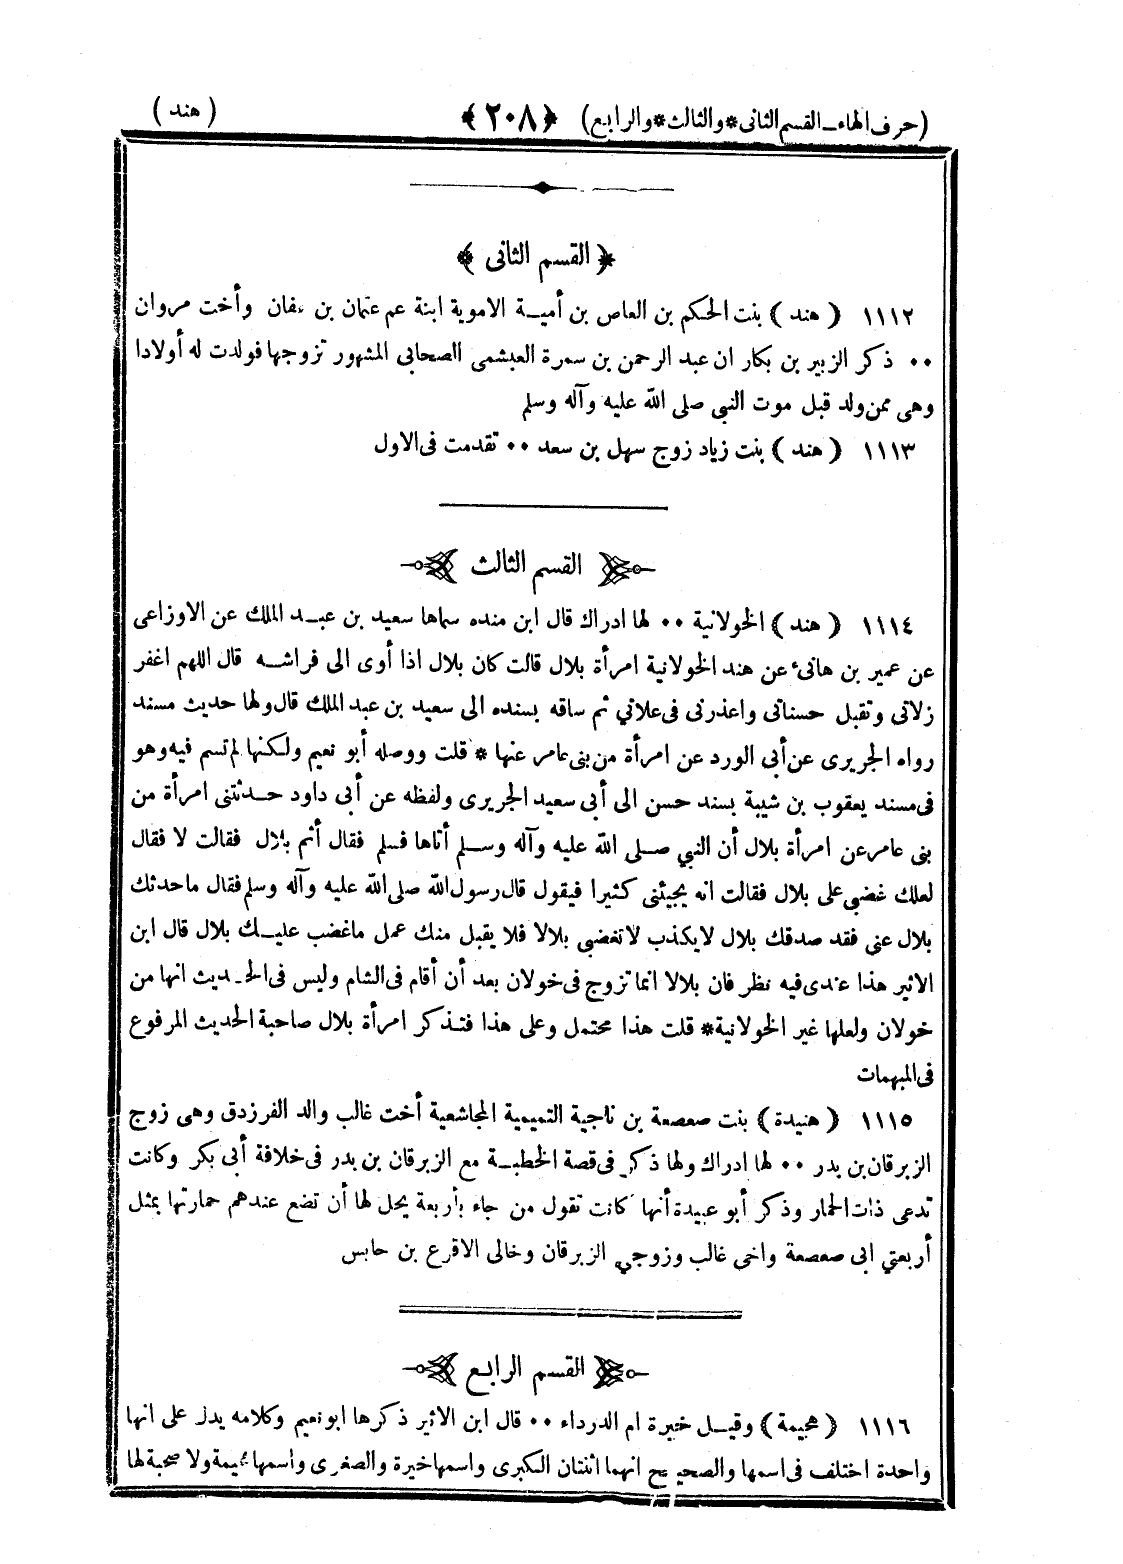 (حرف الهاء ـ القسم الثانى * والثالث * والرابع) ﴿٢٠٨﴾ (هند)
﴿ القسم الثانى ﴾
١١١٢ (هند) بنت الحكم بن العاص بن أمية الاموية ابنة عم عثمان بن عفان وأخت مروان
٠٠ ذكر الزبير بن بكار ان عبد الرحمن بن سمرة العبشمى الصحابى المشهور تزوجها فولدت له أولادا
وهى ممن ولد قبل موت النبي صلى الله عليه وآله وسلم
١١١٣ (هند) بنت زياد زوج سهل بن سعد ٠٠ تقدمت فى الاول
القسم الثالث
١١١٤ (هند) الخولانية ٠٠ لها ادراك قال ابن منده سماها سعيد بن عبد الملك عن الاوزاعى
عن عمير بن هانئ عن هند الخولانية امرأة بلال قالت كان بلال اذا أوى الى فراشه قال اللهم اغفر
زلاتى وتقبل حسناتى واعذرنى فى علاتي ثم ساقه بسنده الى سعيد بن عبد الملك قال ولها حديث مسند
رواه الجريرى عن أبي الورد عن امرأة من بنى عامر عنها * قلت ووصله أبو نعيم ولكنها لم تسم فيه وهو
فى مسند يعقوب بن شيبة بسند حسن الى أبي سعيد الجريرى ولفظه عن أبى داود حدثتنى امرأة من
بنى عامر عن امرأة بلال أن النبي صلى الله عليه وآله وسلم أتاها فسلم فقال أثم بلال فقالت لا فقال
لعلك غضبي على بلال فقالت انه يجيئنى كثيرا فيقول قال رسول الله صلى الله عليه وآله وسلم فقال ماحدثك
بلال عنى فقد صدقك بلال لا يكذب لا تغضبي بلالا فلا يقبل منك عمل ماغضب عليك بلال قال ابن
الاثير هذا عندى فيه نظر فان بلالا انما تزوج فى خولان بعد أن أقام فى الشام وليس فى الحديث انها من
خولان ولعلها غير الخولانية * قلت هذا محتمل وعلى هذا فتذكر امرأة بلال صاحبة الحديث المرفوع
فى المبهمات
١١١٥ (هنيدة) بنت صعصعة بن ناجية التميمية المجاشعية أخت غالب والد الفرزدق وهى زوج
الزبرقان بن بدر ٠٠ لها ادراك ولها ذكر فى قصة الخطبة مع الزبرقان بن بدر فى خلافة أبى بكر وكانت
تدعى ذات الخمار وذكر أبو عبيدة أنها كانت تقول من جاء بأربعة يحل لها أن تضع عندهم خمارتها بمثل
أربعتي ابى صعصعة واخى غالب وزوجي الزبرقان وخالى الاقرع بن حابس
القسم الرابع
١١١٦ (هجيمة) وقيل خيرة ام الدرداء ٠٠ قال ابن الاثير ذكرها ابو نعيم وكلامه يدل على انها
واحدة اختلف فى اسمها والصحيح انهما اثنتان الكبرى واسمها خيرة والصغرى واسمها هجيمة ولا صحبة لها